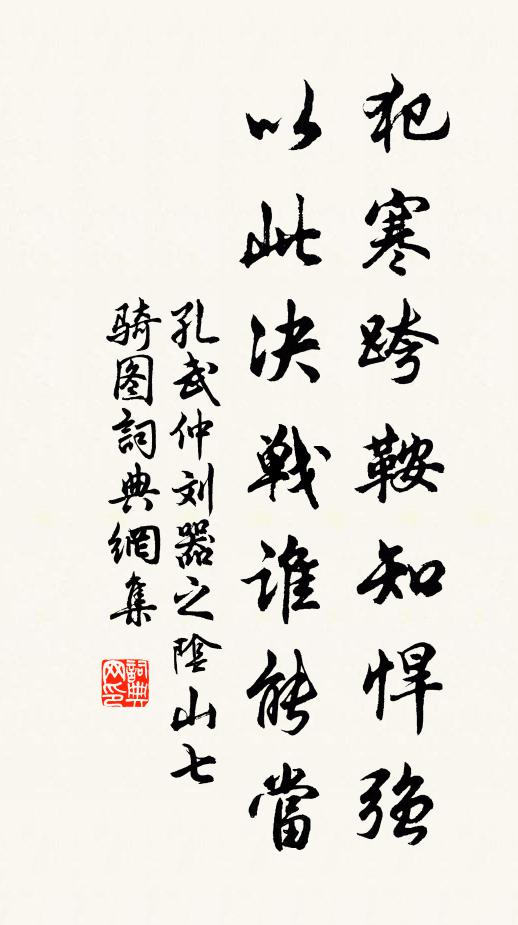 犯寒跨鞍知悍强
以此决戰谁能當
孔武仲刘器之陰山七
骑图詞典網集
詞典网印